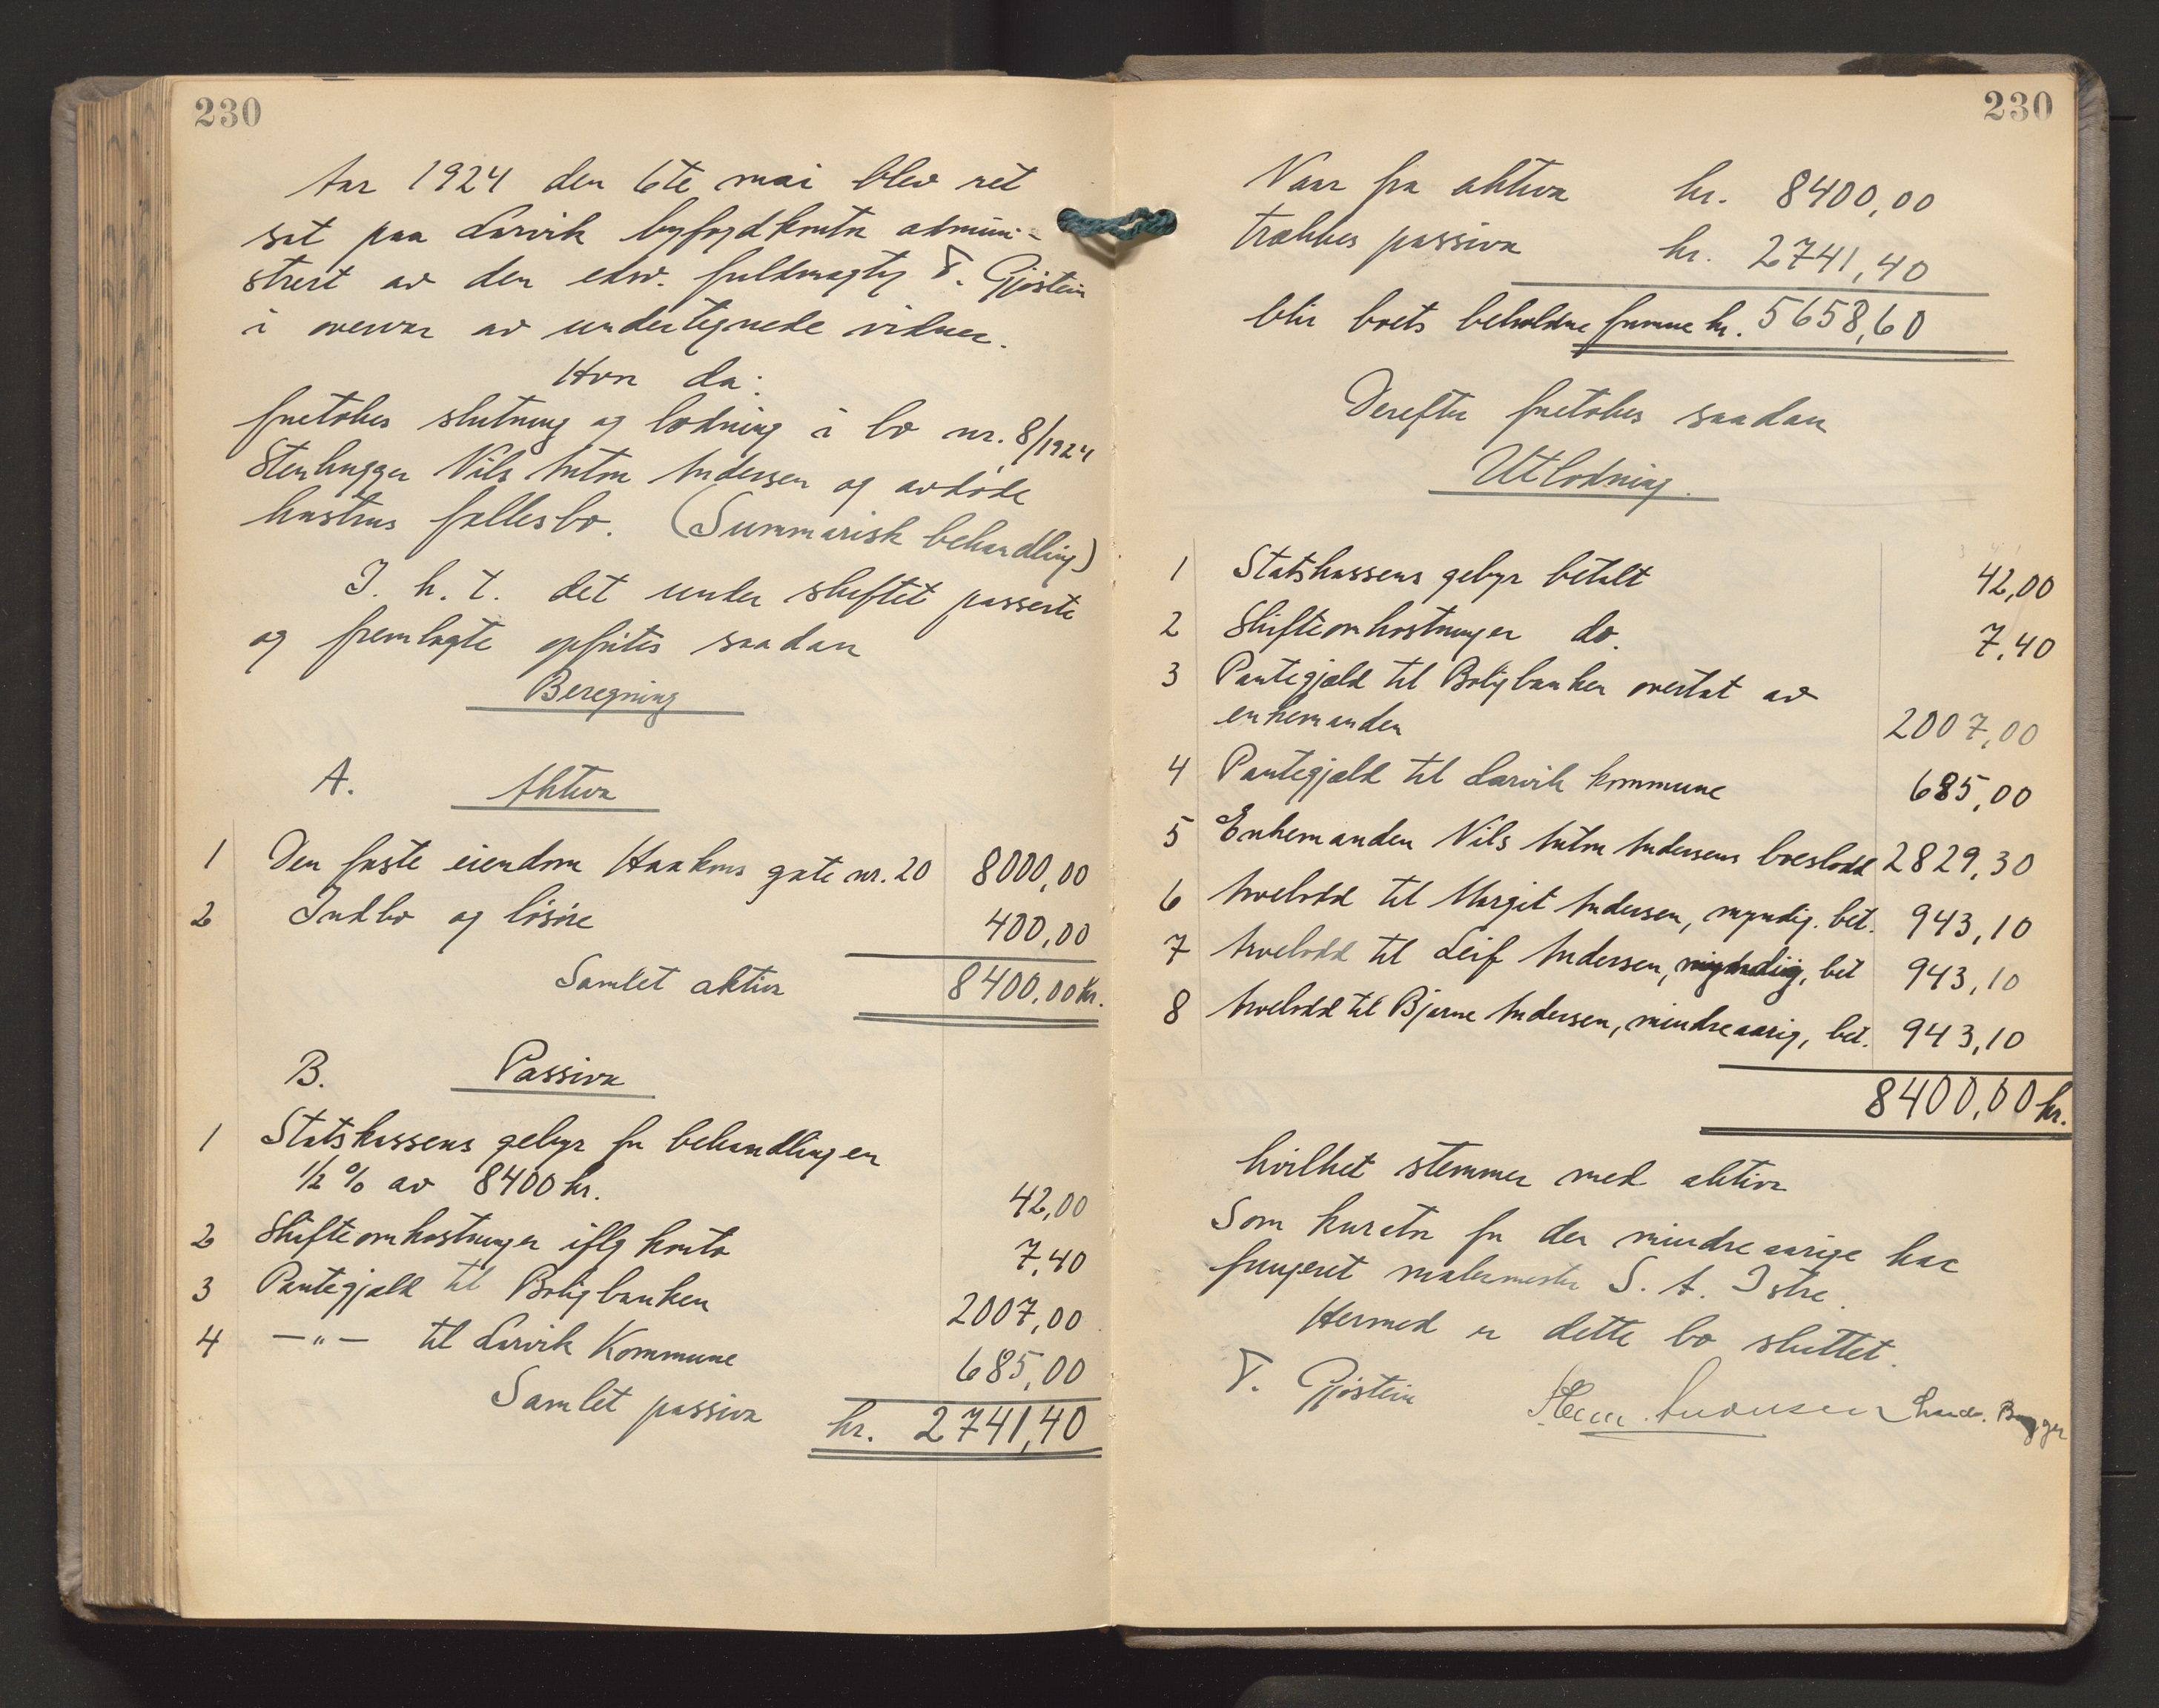 230
Aar 1924 den 6te mai blev ret
sat paa Larvik byfogdkontor admini-
strert av den edsv. fuldmægtig T. Gjøstein
i overvær av undertegnede vidner.
Hvor da:
foretokes slutning og lodning i bo nr. 8/1924
Stenhugger Nils Anton Andersen og avdøde
hustrus fællesbo. (Summarisk behandling)
I. h. t. det under skiftet passerte
og fremlagte opførtes saadan
Beregning
A. Aktiva
1 Den faste eiendom Haakons gate nr. 20 8000,00
2 Indbo og løsøre 400,00
Samlet aktiva 8400,00 kr.
B. Passiva
1 Statskassens gebyr for behandlingen
1/2 % av 8400 kr. 42,00
2 Skifteomkostninger iflg konto 7,40
3 Pantegjæld til Boligbanken 2007,00
4 —"— til Larvik Kommune 685,00
Samlet passiva kr. 2741,40
230
Naar fra aktiva kr. 8400,00
trækkes passiva kr. 2741,40
blir boets beholdne formue kr. 5658,60
Derefter foretokes saadan
Utlodning.
1 Statskassens gebyr betalt 42,00
2 Skifteomkostninger do. 7,40
3 Pantegjæld til Boligbanken overtat av
enkemanden 2007,00
4 Pantegjæld til Larvik kommune 685,00
5 Enkemanden Nils Anton Andersens boeslodd 2829,30
6 Arvelodd til Margit Andersen, myndig. bet. 943,10
7 Arvelodd til Leif Andersen, myndig, bet 943,10
8 Arvelodd til Bjarne Andersen, mindreaarig, bet. 943,10
8400,00 kr.
hvilket stemmer med aktiva
Som kurator for den mindreaarige har
fungeret malermester S. A. Istre.
Hermed er dette bo sluttet.
T. Gjøstein Andersen Bugger